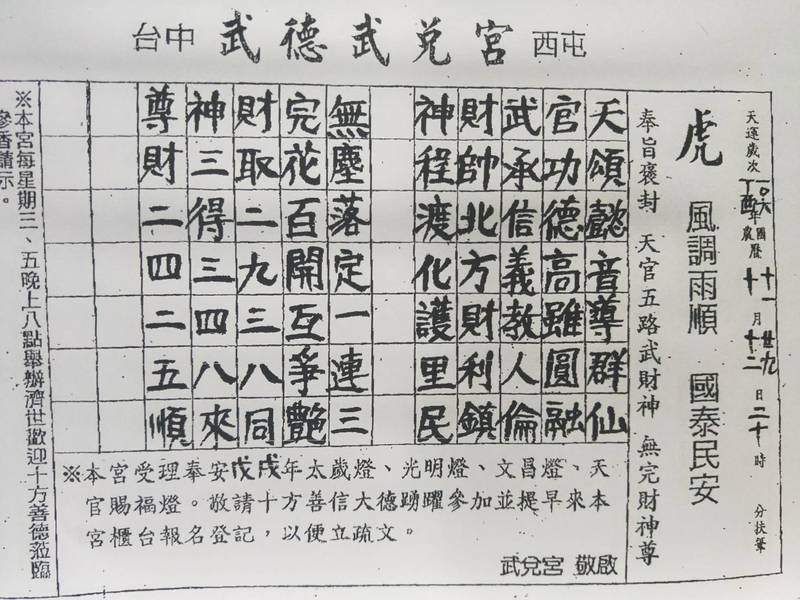 台中 武德武兌宮 西屯
天運歲次一〇六丁酉年國農曆十一十月廿九十二日二十時 分扶筆
虎 風調雨順 國泰民安
奉旨褒封 天官五路武財神 無完財神尊
天頌懿音尊群仙
官功德高雖圓融
武承信義教人倫
財帥北方財利鎮
神程渡化護里民
無塵落定一連三
完花百開互爭艷
財取二九三八同
神三得三四八來
尊財二四二五順
※本宮受理奉安戊戌年太歲燈、光明燈、文昌燈、天
官賜福燈。敬請十方善信大德踴躍參加並提早來本
宮櫃台報名登記，以便立疏文。
武兌宮 敬啟
※本宮每星期三、五晚上八點舉辦濟世歡迎十方善德蒞臨
參香請示。